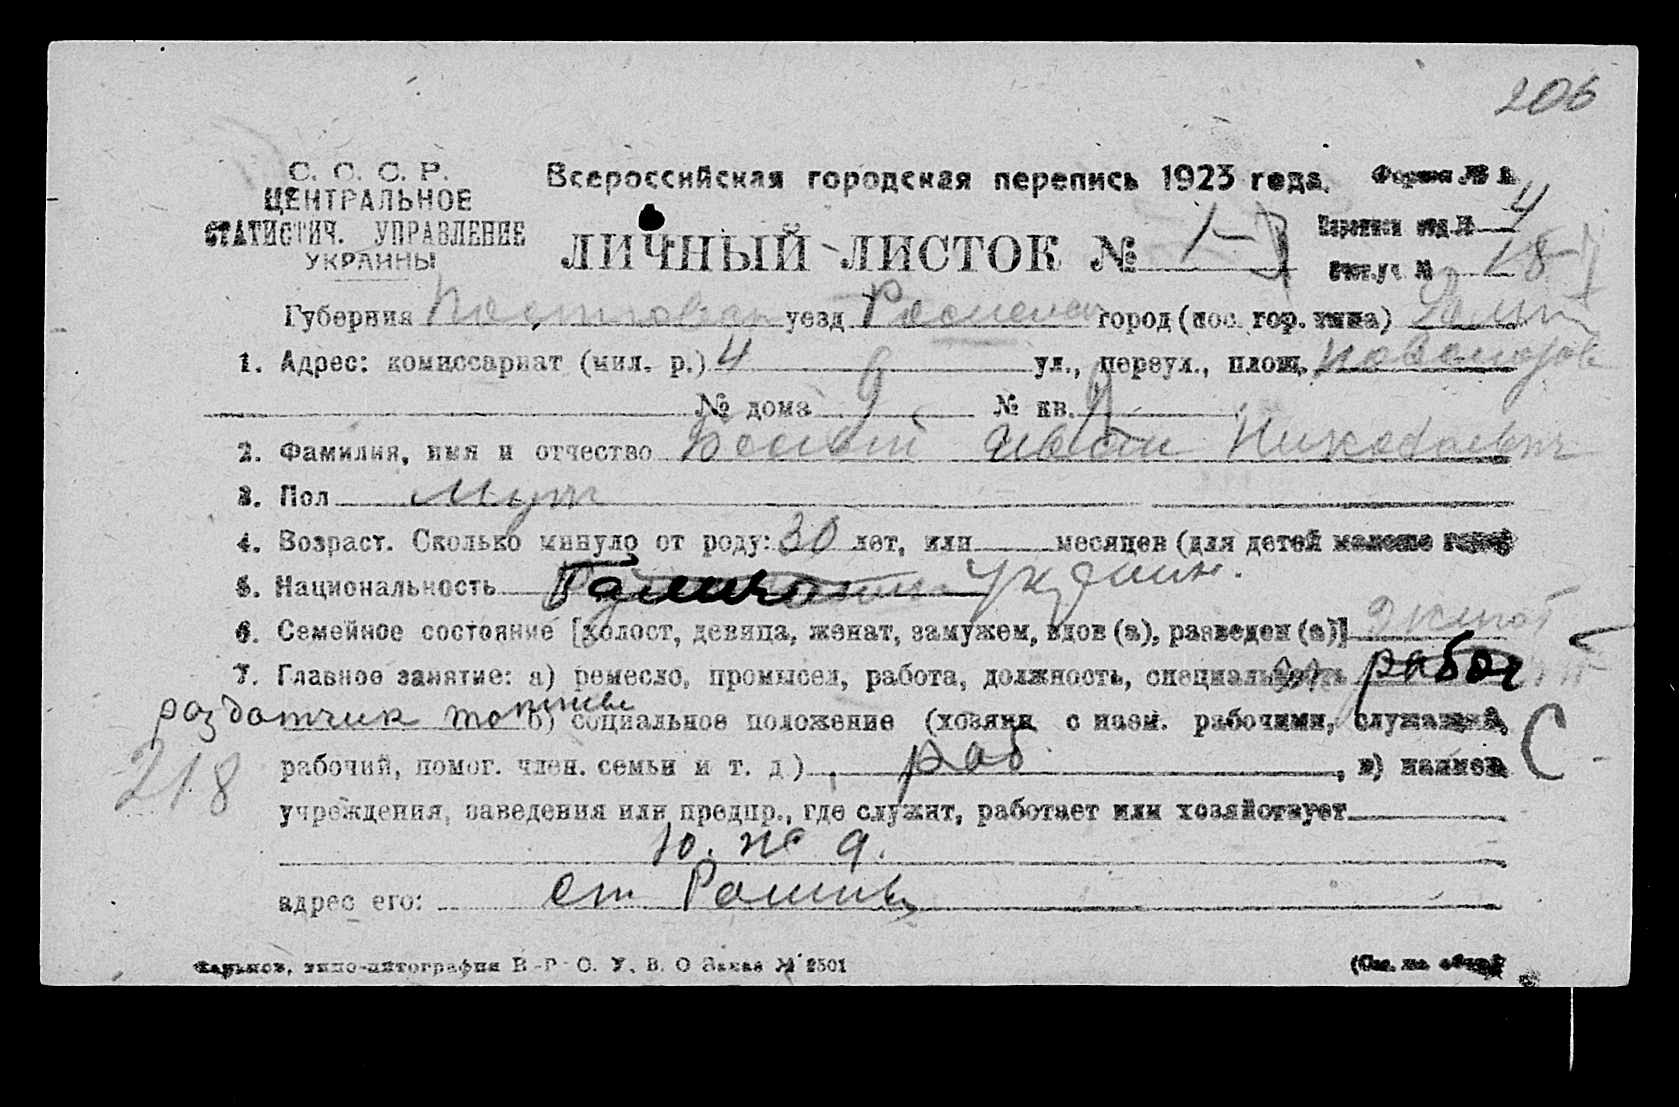 206
С. С. С. Р.
ЦЕНТРАЛЬНОЕ
СТАТИСТИЧ. УПРАВЛЕНИЕ
УКРАИНЫ
Всероссийская городская перепись 1923 года.
Форма № 1.
ЛИЧНЫЙ ЛИСТОК № 1-
Переписн отд. № 4
Счет.уч № 18
Губерния Полтовская уезд Роменский город (пос. гор. типа) Ромны
1. Адрес: комиссариат (мил. р.) 4 ул., переул., площ.
№ дома 9 № кв.
2. Фамилия, имя и отчество Иван Николаевич
3. Пол Муж
4. Возраст. Сколько минуло от роду: 30 лет, или месяцев (для детей моложе года)
5. Национальность Украин.
6. Семейное состояние [холост, девица, женат, замужем, вдов (а), разведен (а)] женат
7. Главное занятие: а) ремесло, промысел, работа, должность, специальность рабоч
раздатчик топлива б) социальное положение (хозяин с наем. рабочими, служащий, С
рабочий, помог. член. семьи и т. д.) раб , в) наимен.
218
учреждения, заведения или предпр., где служит, работает или хозяйствует
Ю. ж д.
адрес его: ст Ромны
Харьков, типо-литография В.-Р. О. У. В. О Заказ № 2501
(См. на обор.)